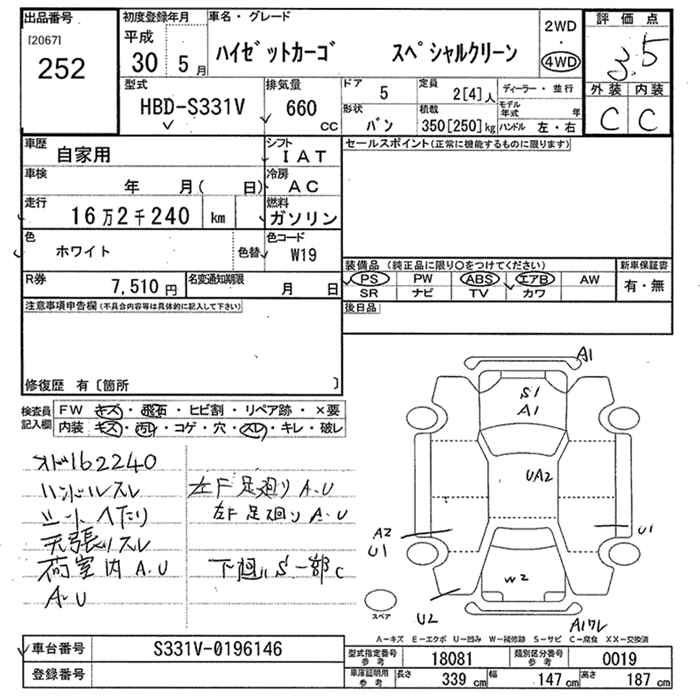 出品番号
[2067]
252
初度登録年月
平成
30 5月
車名・グレード
ハイゼットカーゴ スペシャルクリーン
2WD
・
4WD
評価点
3.5
外装 内装
C C
型式
HBD-S331V
排気量
660
cc
ドア
5
定員
2[4]人
形状
バン
積載
350[250]kg
ディーラー・並行
モデル年式 年
ハンドル 左・右
車歴
自家用
シフト
IAT
車検
年 月( 日)
冷房
AC
走行
16万2千240 km
燃料
ガソリン
色
ホワイト
色替
色コード
W19
R券
7,510円
名変通知期限
月 日
セールスポイント(正常に機能するものに限ります)
装備品(純正品に限り○をつけてください)
新車保証書
PS PW ABS エアB AW
SR ナビ TV カワ
有・無
後日品
注意事項申告欄(不具合内容等は具体的に記入して下さい)
修復歴 有〔箇所 〕
検査員記入欄
FW キズ・飛石・ヒビ割・リペア跡・×要
内装 キズ・汚れ・コゲ・穴・スレ・キレ・破レ
オド162240
ハンドルスレ
シートへたり
天張りスレ
荷室内A.U
A.U
左F足廻りA.U
左F足廻りA.U
下廻りS一部C
A1
S1
A1
UA2
A2
U1
U1
W2
U2
A1ワレ
スペア
A-キズ E-エクボ U-凹み W-補修跡 S-サビ C-腐食 XX-交換済
車台番号
S331V-0196146
登録番号
型式指定番号
参考
18081
類別区分番号
参考
0019
車庫証明用
参考
長さ
339 cm
幅
147 cm
高さ
187 cm